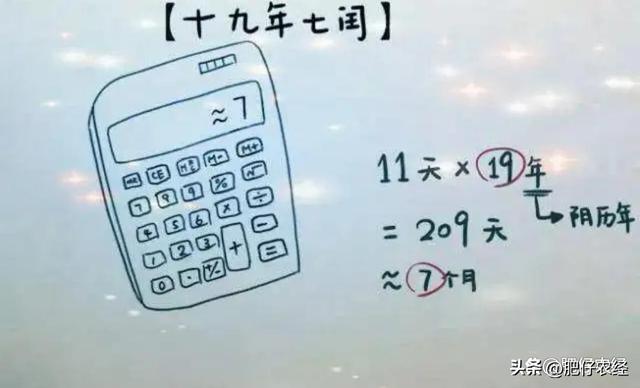 【十九年七闰】
≈7
MC CE M- M+
7 8 9 % √
4 5 6 × ÷
1 2 3 + −
0 · +/− =
11天×19年
→阴历年
=209天
≈7个月
头条@肥仔农经